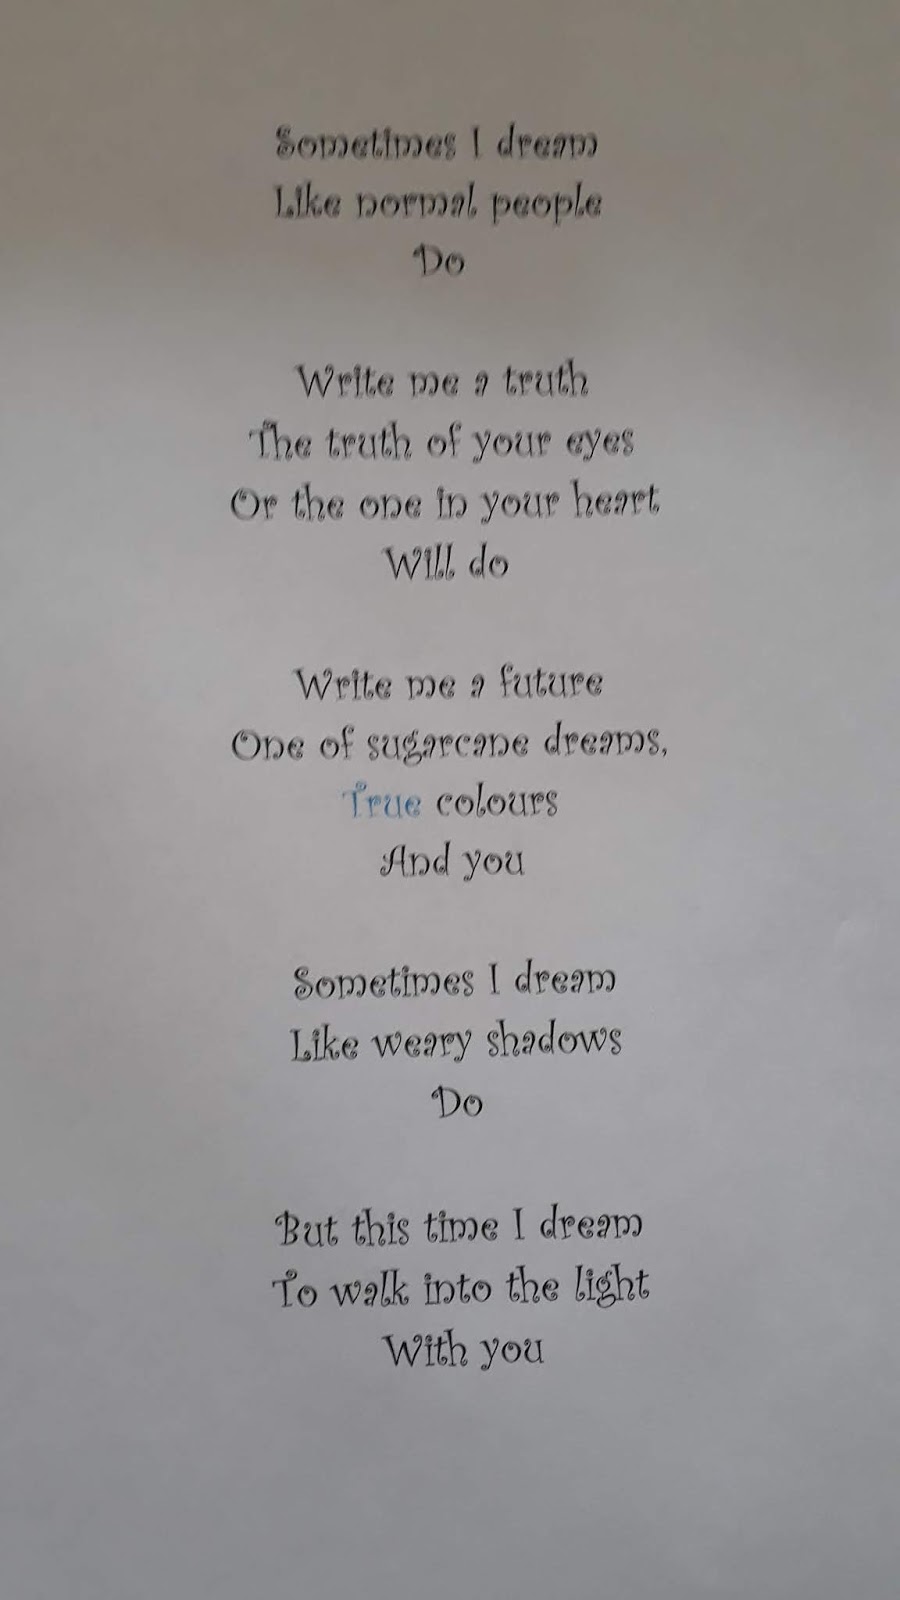 Sometimes I dream
Like normal people
Do
Write me a truth
The truth of your eyes
Or the one in your heart
Will do
Write me a future
One of sugarcane dreams,
True colours
And you
Sometimes I dream
Like weary shadows
Do
But this time I dream
To walk into the light
With you